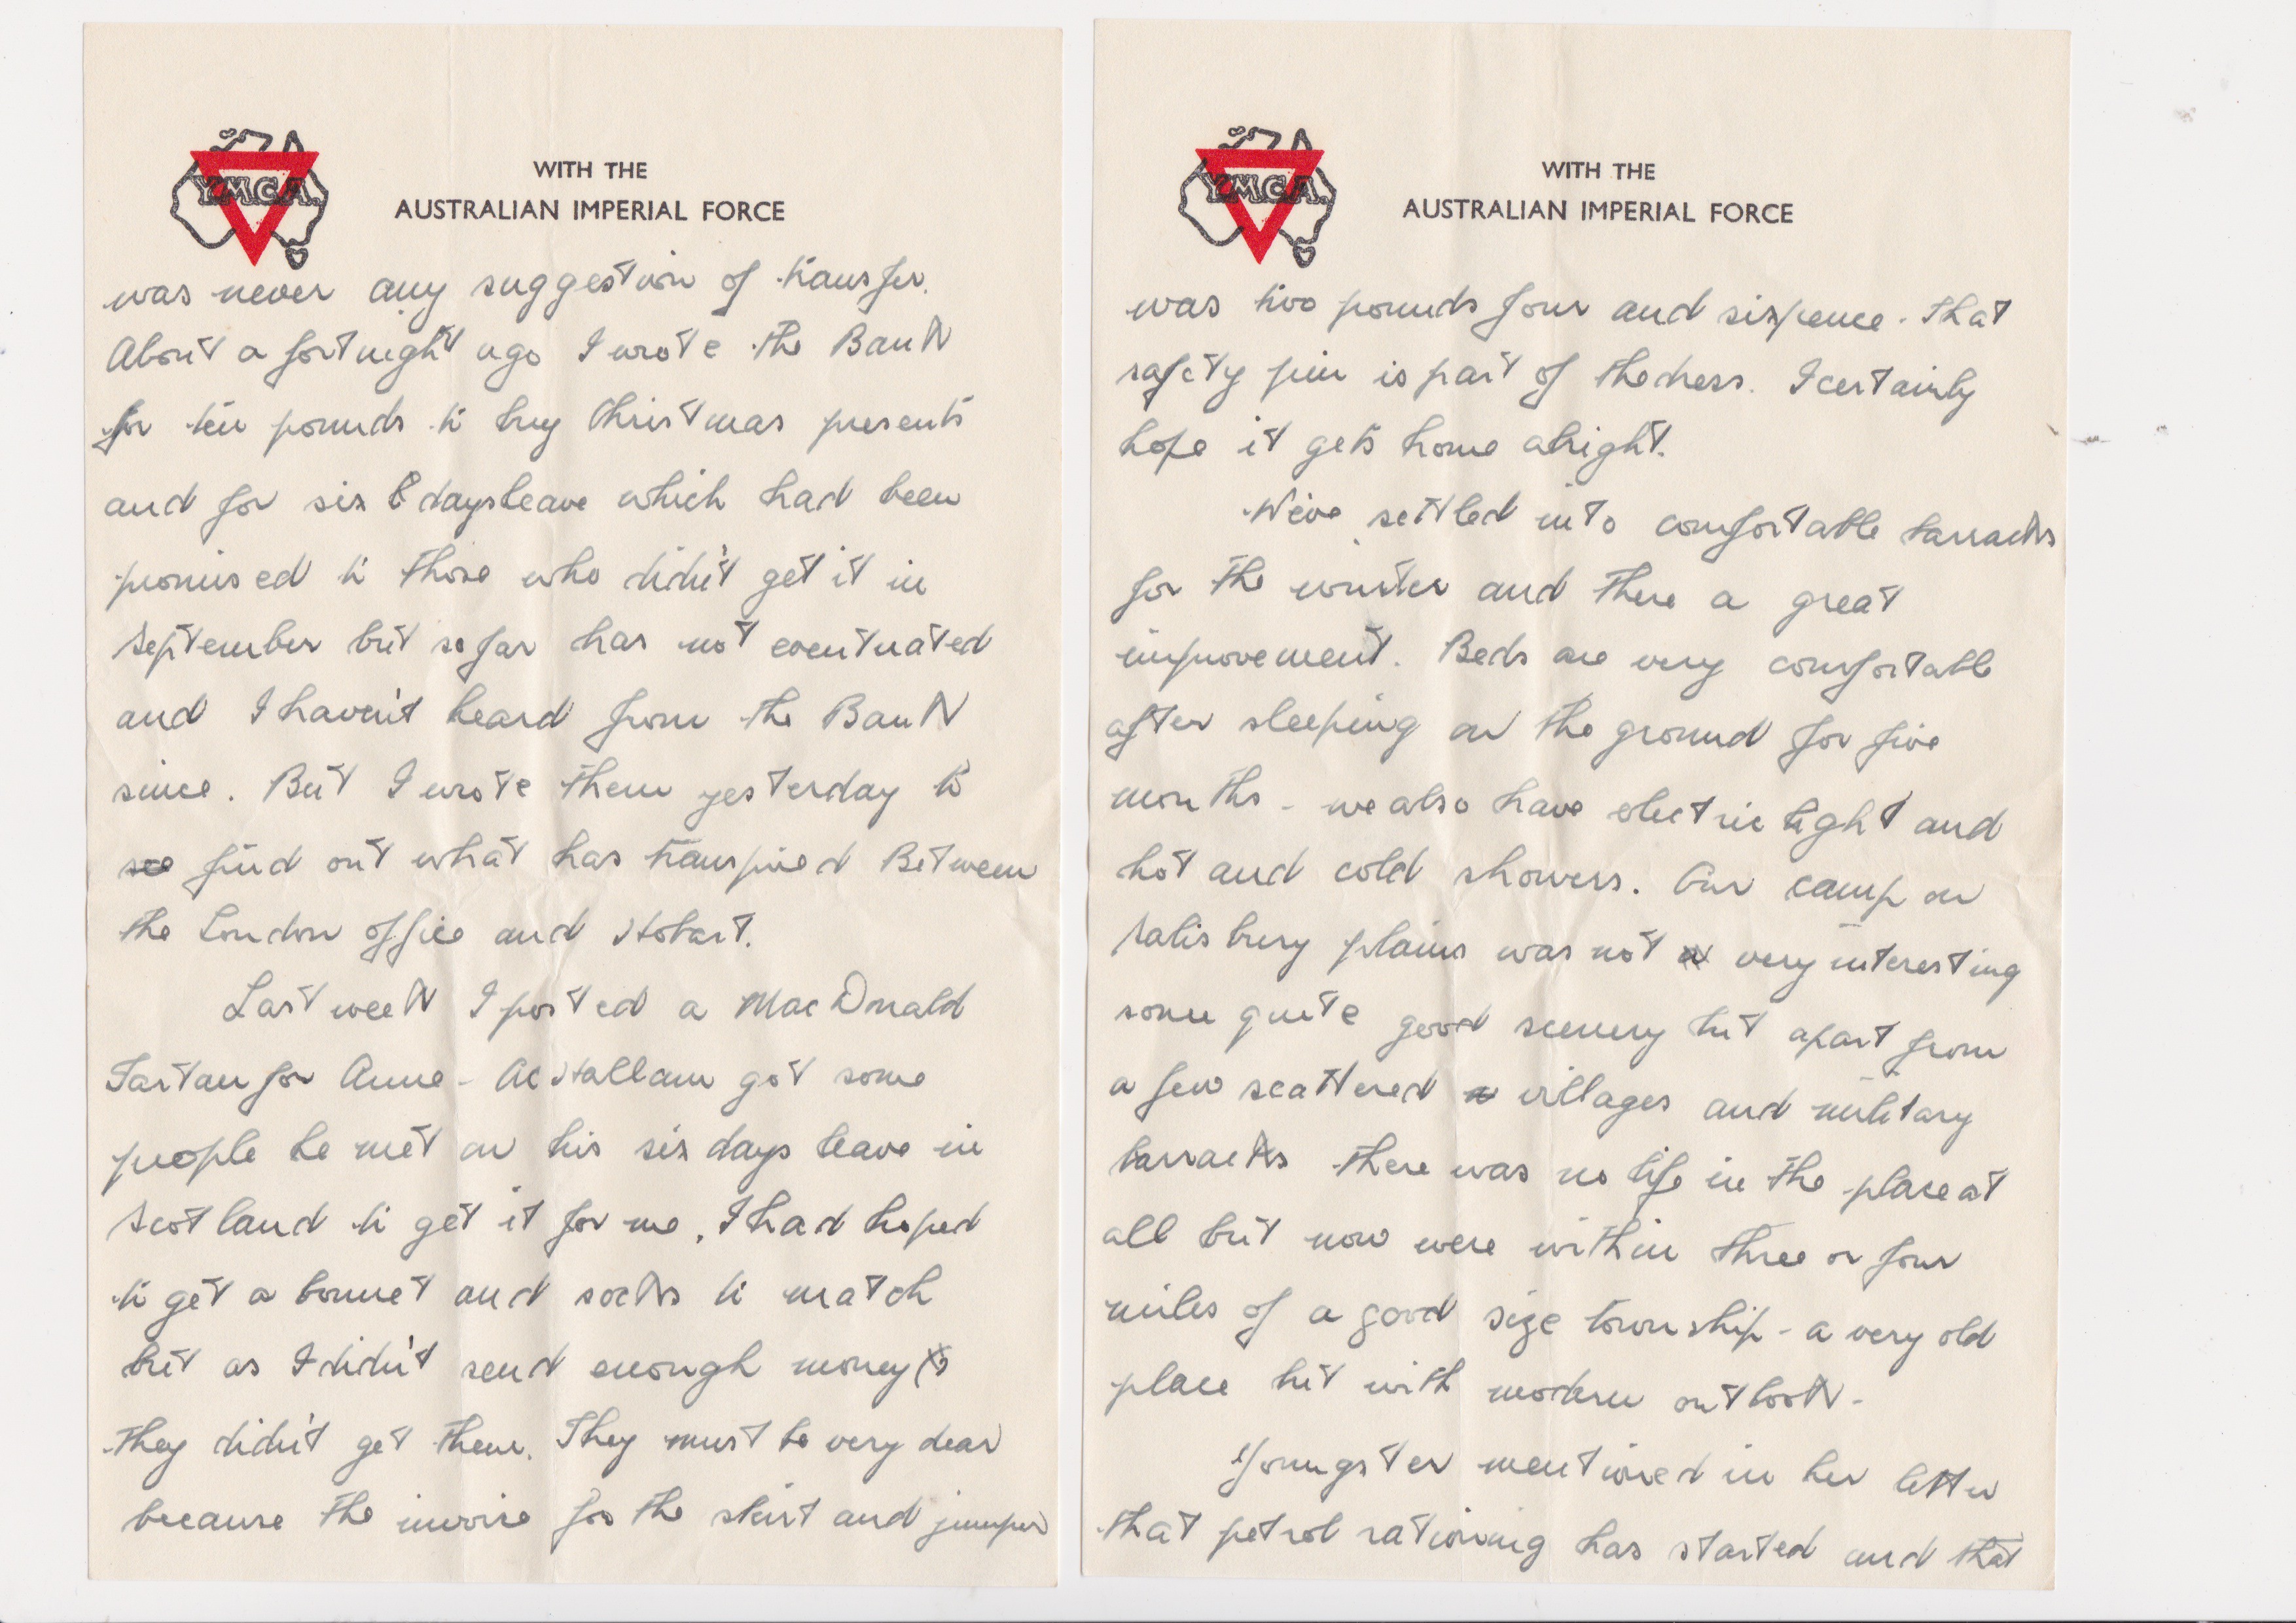 Y.M.C.A.
WITH THE
AUSTRALIAN IMPERIAL FORCE
was never any suggestion of transfer.
About a fortnight ago I wrote the Bank
for ten pounds to buy Christmas presents
and for six days leave which had been
promised to those who didn't get it in
September but so far has not eventuated
and I haven't heard from the Bank
since. But I wrote them yesterday to
see find out what has transpired Between
the London office and Hobart.
Last week I posted a MacDonald
Tartan for Anne - Ac Hallam got some
people he met on his six days leave in
Scotland to get it for me, I had hoped
to get a bonnet and socks to match
but as I didn't send enough money
they didn't get them. They must be very dear
because the invoice for the skirt and jumper
Y.M.C.A.
WITH THE
AUSTRALIAN IMPERIAL FORCE
was two pounds four and sixpence. That
safety pin is part of the dress. I certainly
hope it gets home alright.
We've settled into comfortable barracks
for the winter and there a great
improvement. Beds are very comfortable
after sleeping on the ground for five
months - we also have electric light and
hot and cold showers. Our camp on
Salisbury plains was not a very interesting
some quite good scenery but apart from
a few scattered villages and military
barracks there was no life in the place at
all but now were within three or four
miles of a good size township - a very old
place but with modern outlook -
Youngster mentioned in her letter
that petrol rationing has started and that